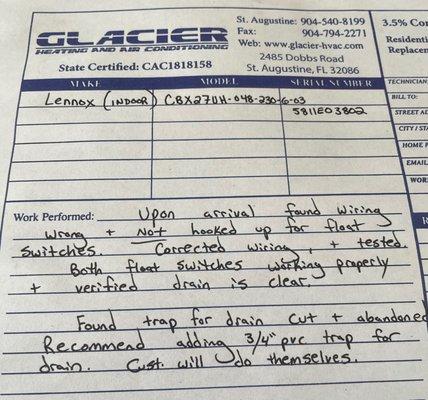 GLACIER
HEATING AND AIR CONDITIONING
State Certified: CAC1818158
St. Augustine: 904-540-8199
Fax: 904-794-2271
Web: www.glacier-hvac.com
2485 Dobbs Road
St. Augustine, FL 32086
3.5% Con
Residenti
Replacem
MAKE MODEL SERIAL NUMBER
Lennox (INDOOR) CBX27UH-048-230-6-03
5811E03802
TECHNICIAN
BILL TO:
STREET AD
CITY / STA
HOME P
EMAIL
WOR
Work Performed: Upon arrival found wiring
wrong + Not hooked up for float
switches. Corrected wiring, + tested.
Both float switches working properly
+ verified drain is clear.
Found trap for drain cut + abandoned
Recommend adding 3/4" pvc trap for
drain. Cust. will do themselves.